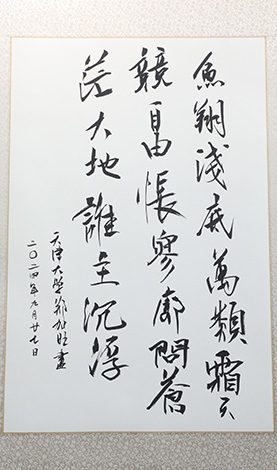 魚翔淺底萬類霜天
競自由悵寥廓問蒼
茫大地誰主沉浮
天津大學鄭
二〇二四年九月廿七日